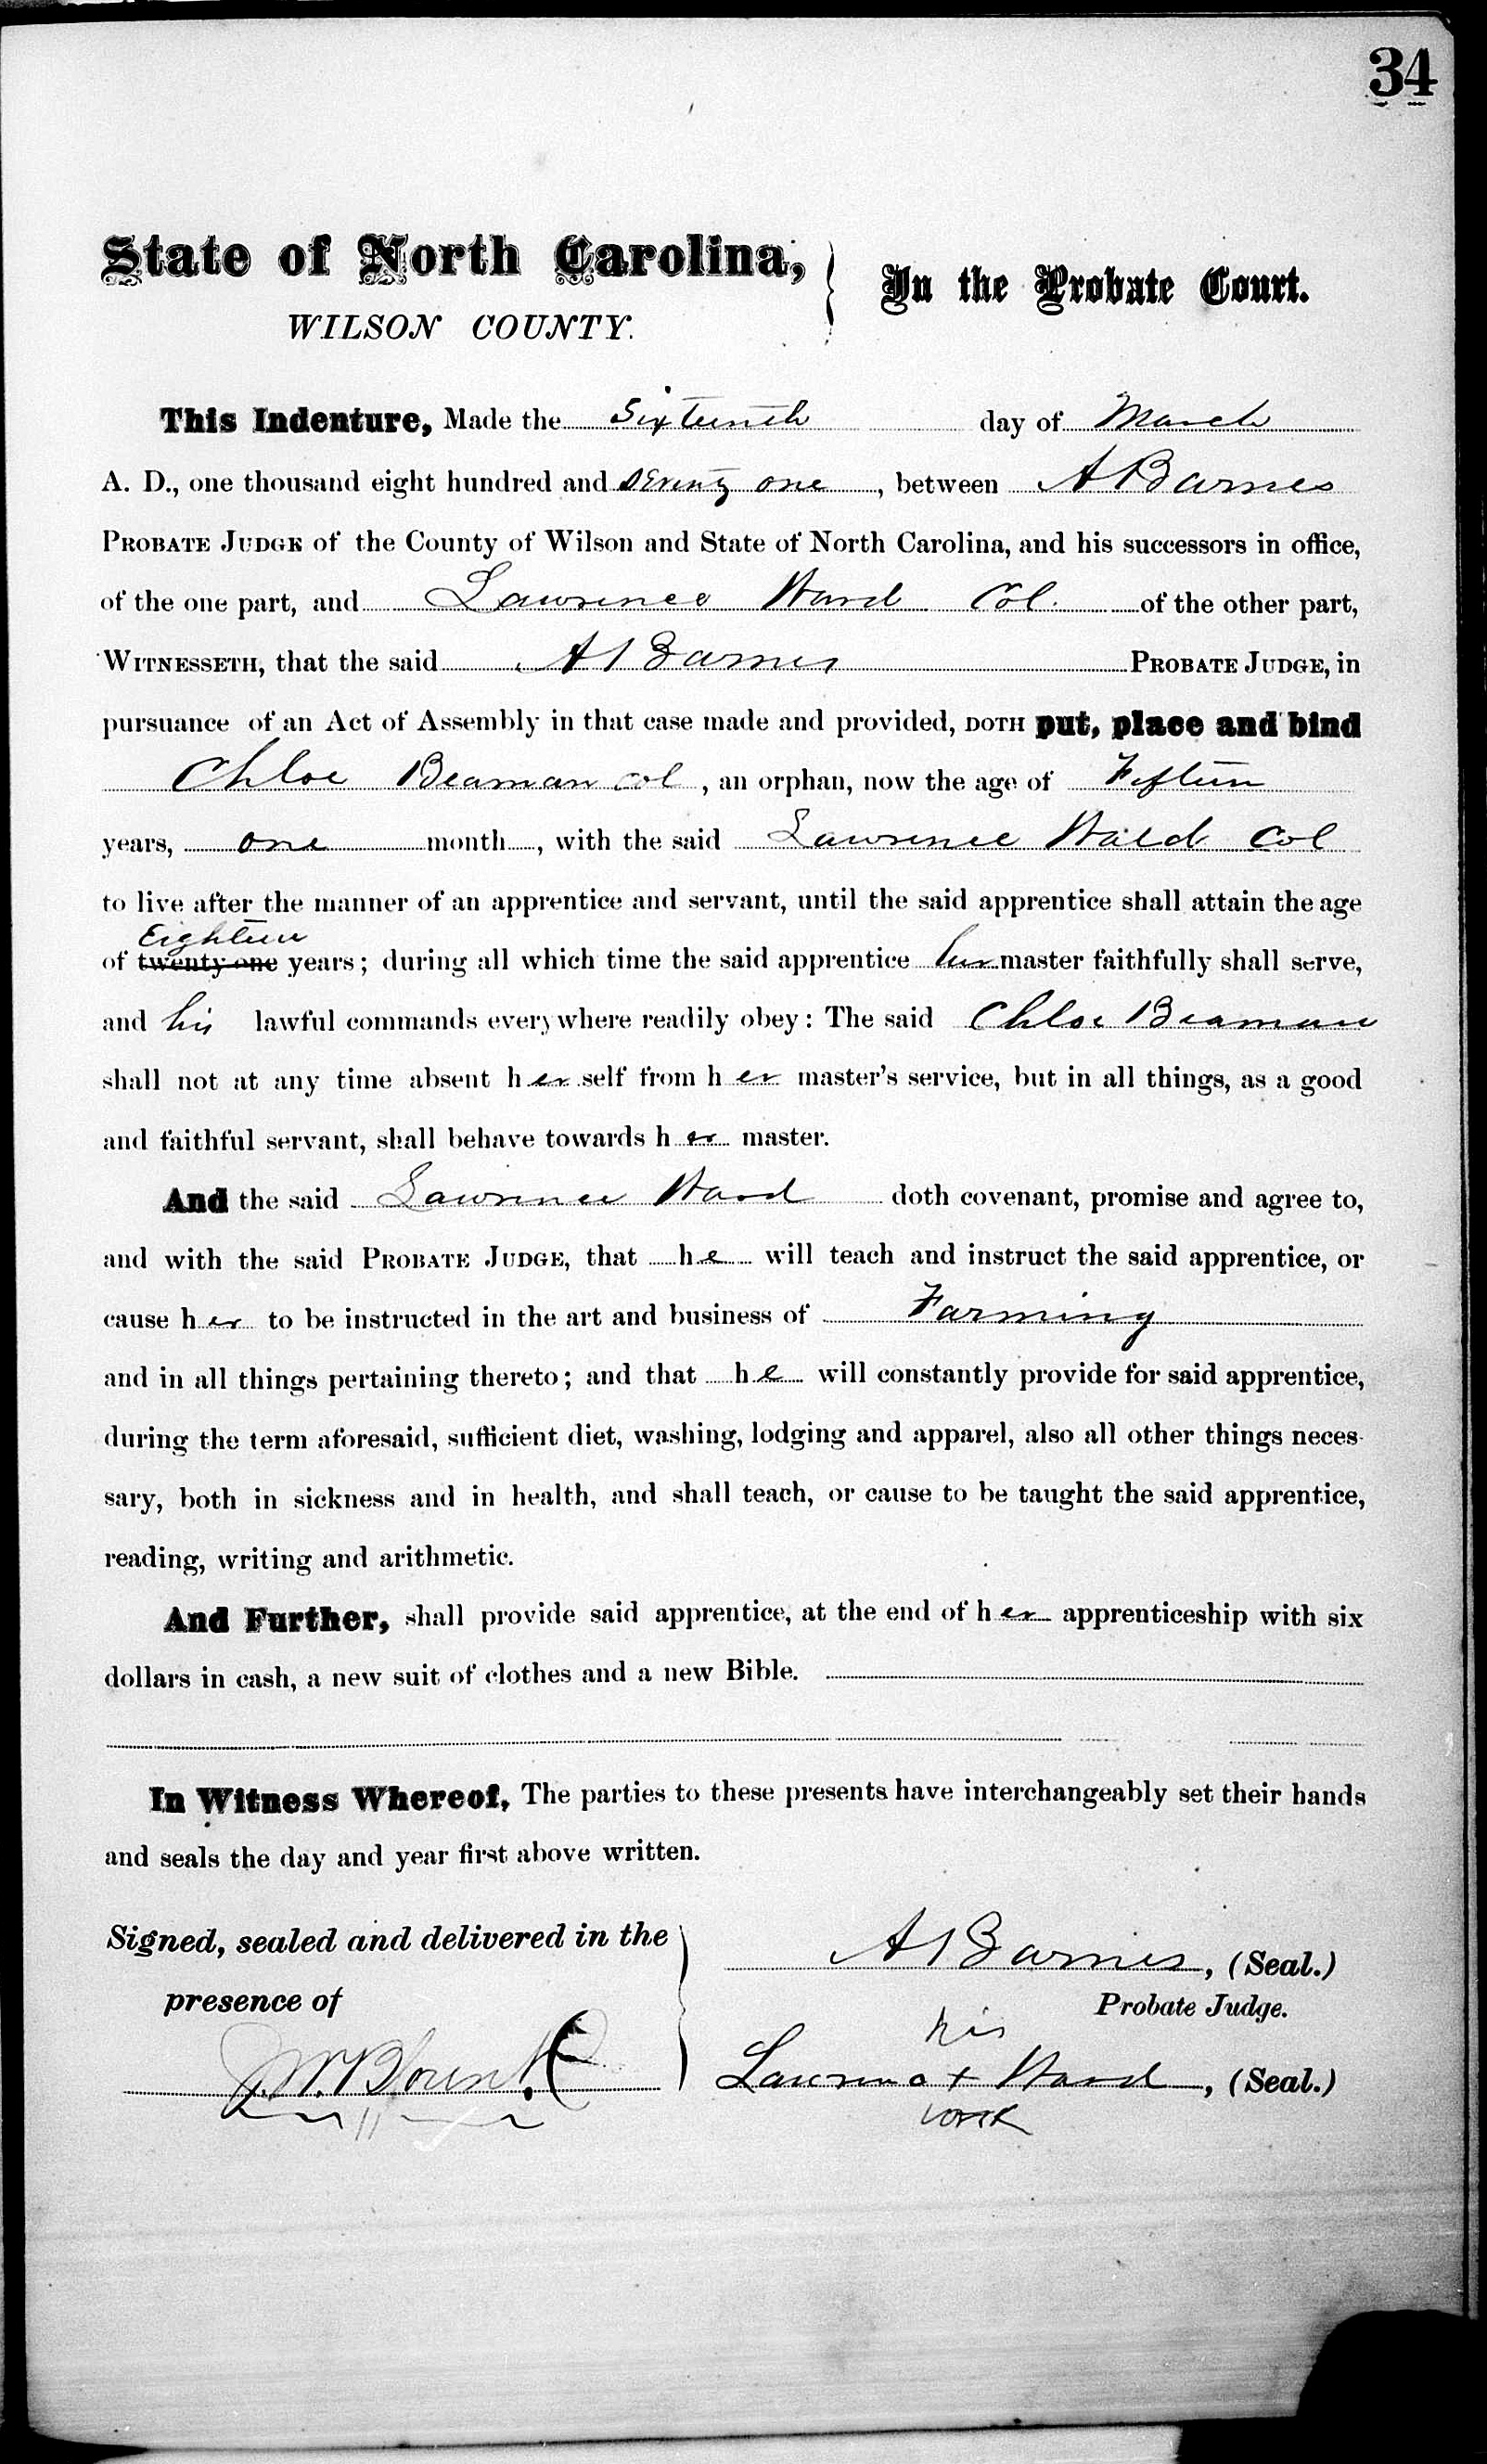 34
State of North Carolina, } In the Probate Court.
WILSON COUNTY.
This Indenture, Made the Sixteenth day of March
A. D., one thousand eight hundred and Seventy one, between A Barnes
PROBATE JUDGE of the County of Wilson and State of North Carolina, and his successors in office,
of the one part, and Lawrence Ward Col. of the other part,
WITNESSETH, that the said A Barnes PROBATE JUDGE, in
pursuance of an Act of Assembly in that case made and provided, DOTH put, place and bind
Chloe Beaman col, an orphan, now the age of Fifteen
years, one month, with the said Lawrence Ward Col
to live after the manner of an apprentice and servant, until the said apprentice shall attain the age
Eighteen
of twenty-one years; during all which time the said apprentice her master faithfully shall serve,
and his lawful commands everywhere readily obey: The said Chloe Beaman
shall not at any time absent herself from her master's service, but in all things, as a good
and faithful servant, shall behave towards her master.
And the said Lawrence Ward doth covenant, promise and agree to,
and with the said PROBATE JUDGE, that he will teach and instruct the said apprentice, or
cause her to be instructed in the art and business of Farming
and in all things pertaining thereto; and that he will constantly provide for said apprentice,
during the term aforesaid, sufficient diet, washing, lodging and apparel, also all other things neces-
sary, both in sickness and in health, and shall teach, or cause to be taught the said apprentice,
reading, writing and arithmetic.
And Further, shall provide said apprentice, at the end of her apprenticeship with six
dollars in cash, a new suit of clothes and a new Bible.
In Witness Whereof, The parties to these presents have interchangeably set their hands
and seals the day and year first above written.
Signed, sealed and delivered in the
presence of
A Barnes, (Seal.)
Probate Judge.
his
J.W. Blount
Lawrence + Ward, (Seal.)
mark